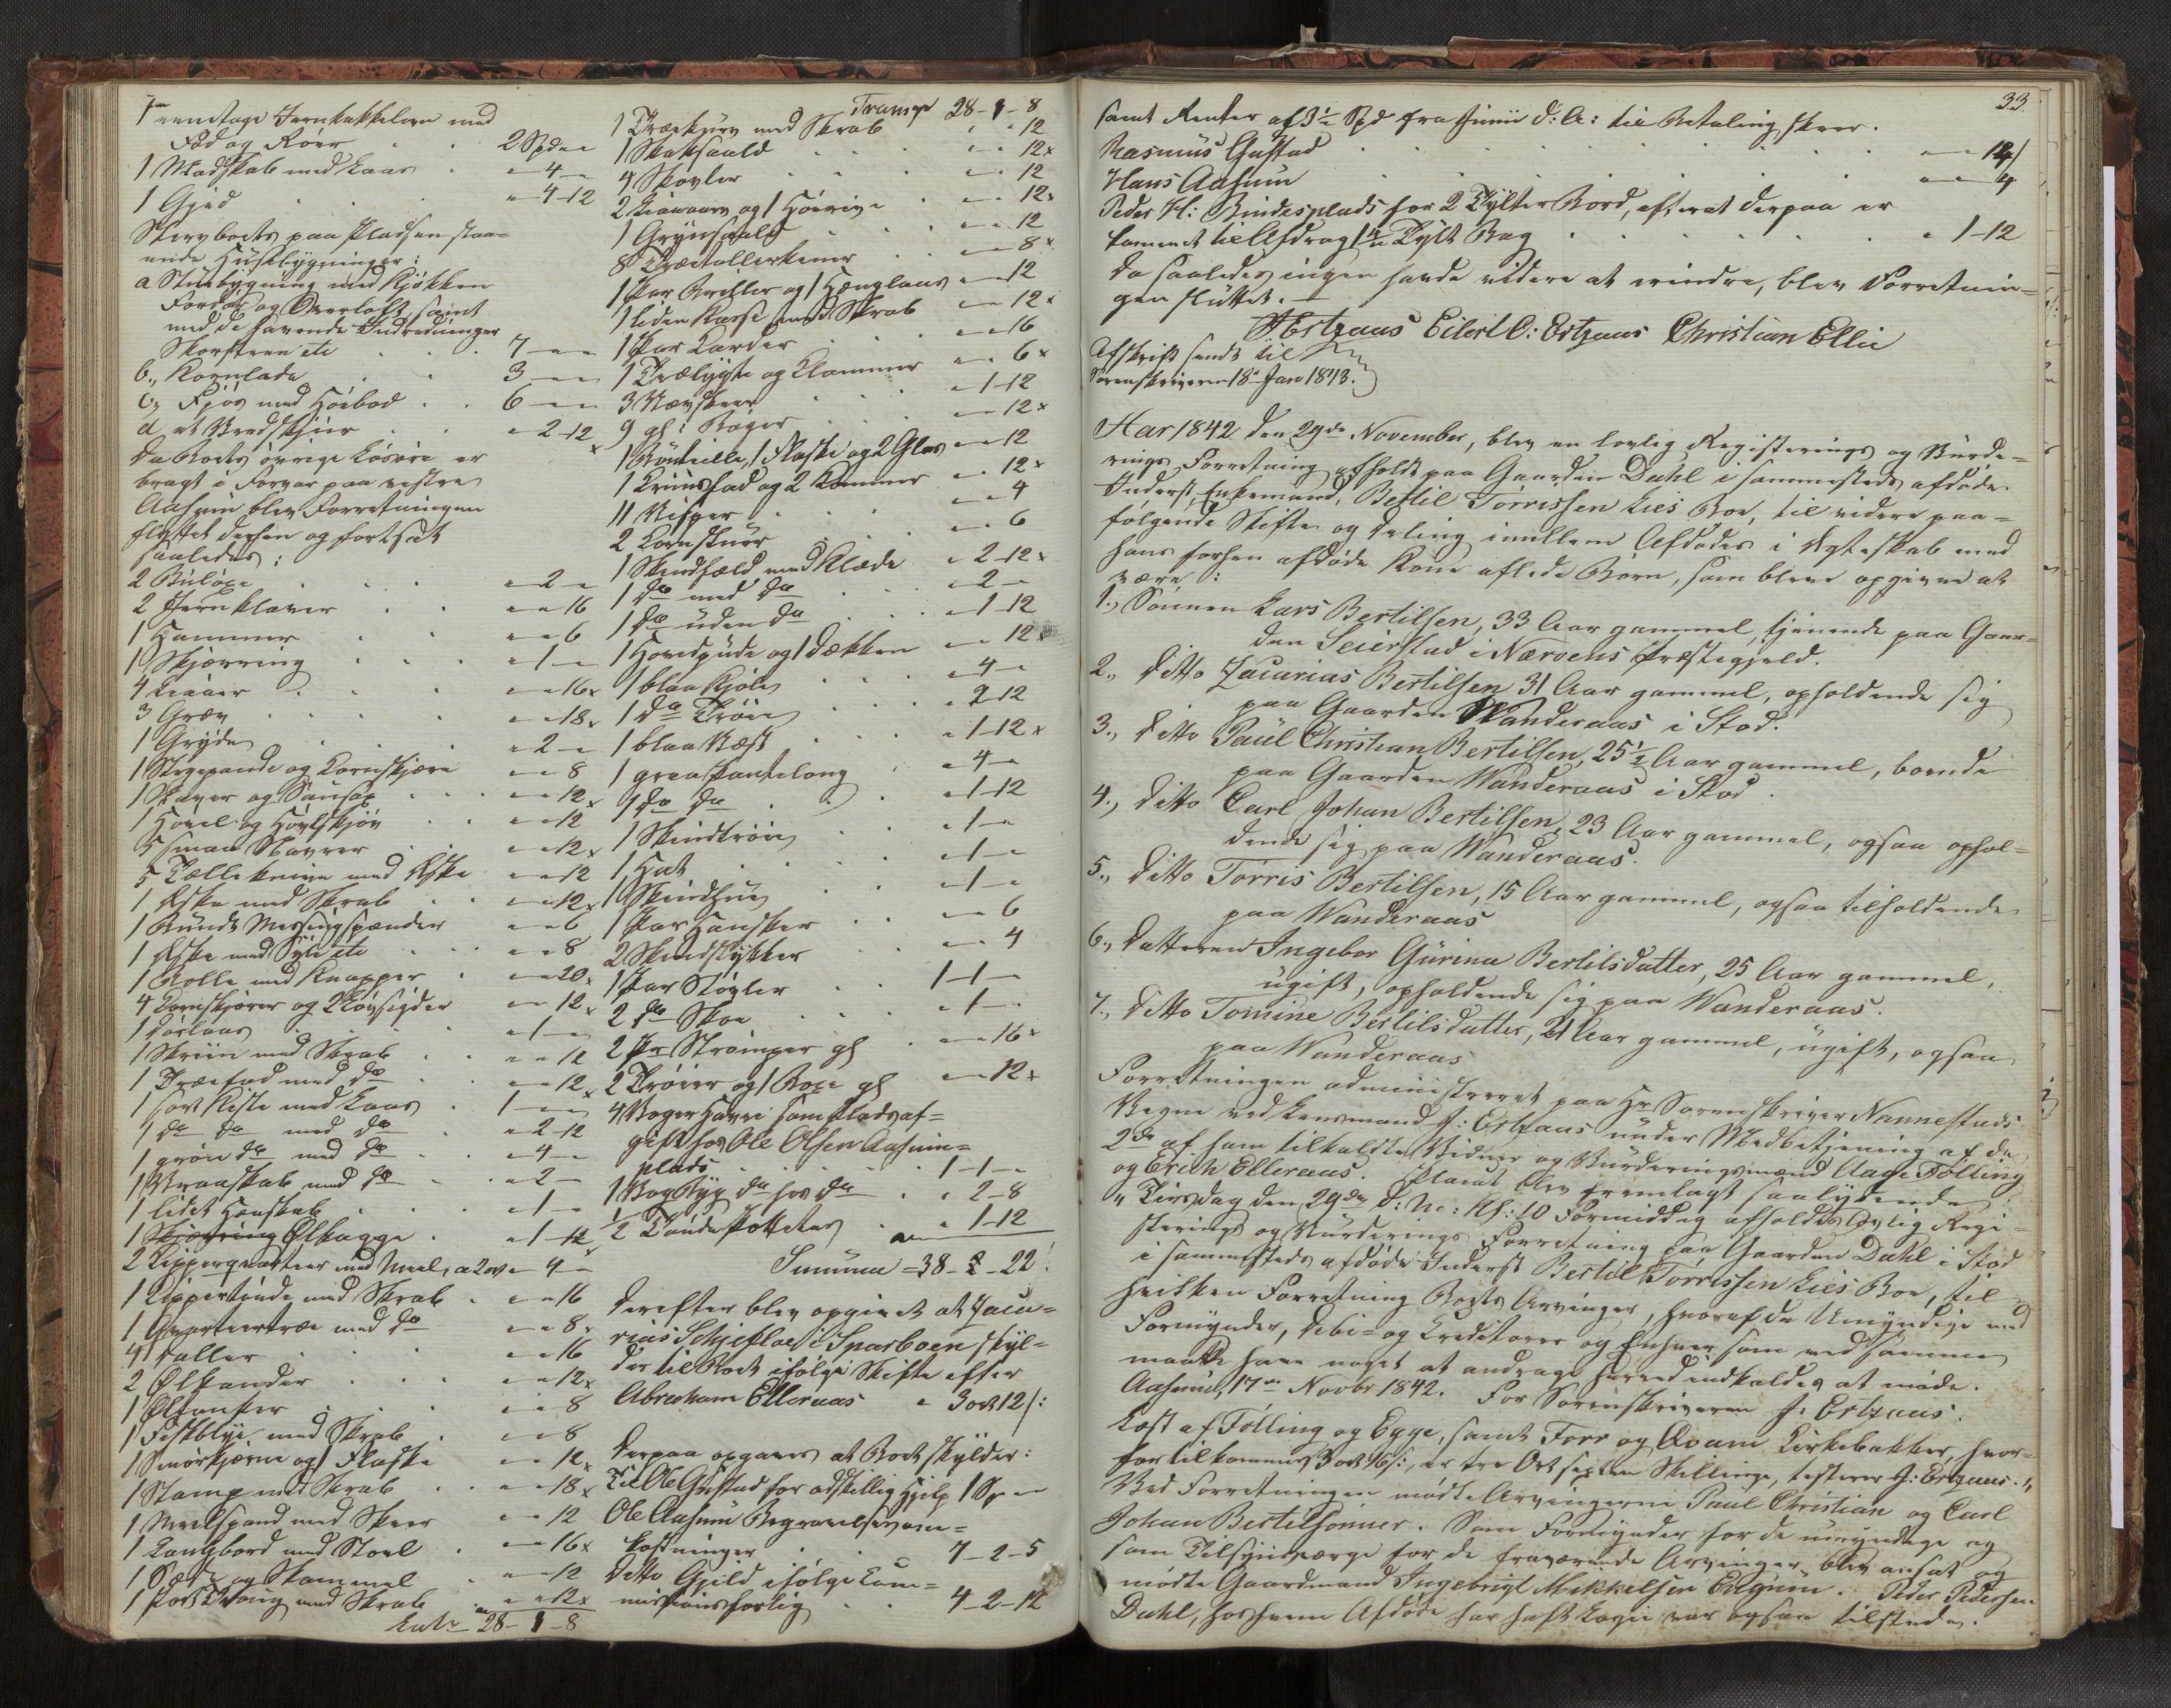 1 eenetages Jernkakkelovn med
Fod og Rörer . . 2 Spd „ „
1 Madskab med Laas . „ 4 „
1 Gjed . . . „ 4-12
Stervboets paa Pladsen staa=
ende Huusbygninger:
a Stuebygning med Kjökken
Fordör og Overloft samt
med de havende Indredninger
Skorsteen etc . . 7 „ „
b., Kornlade . . 3 „ „
c, Fjös med Höebod . . 6 „ „
d et Vedskjur . . „ 2-12
Da Boets övrige Lösöre er
bragt i Forvar paa vestre
Aasum blev Forretningen
flyttet derhen og fortsat
saaledes:
2 Buløxe . . „ 2 „
2 Jernklaver . . „ „ 16
1 Hammer . . „ „ 6
1 Skjærring . . „ 1 „
4 Liaaer . . „ „ 16 x
3 Græv . . „ „ 18 x
1 Gryde . . „ 2 „
1 Stegepande og Kornskjære „ „ 8
1 Skaver og Sausax . . „ „ 12 x
1 Hovel og Hovlskjön . . „ „ 12
5 smaae Navrer . . „ „ 12 x
5 Tælleknive med Æske „ „ 12
1 Æske med Skrab . . „ „ 12 x
1 Bundt Messingspænder „ „ 6
1 Æske med Syle etc . . „ „ 8
1 Rolle med Knapper . „ „ 20 x
4 Kornskjærer og 2 Lövsigder „ „ 12 x
1 Dörlaas . . . „ 1 „
1 Skriin med Skrab . . „ „ 12
1 Træfad med do . . „ „ 12 x
1 sort Kiste med Laas . 1 „ „
1 do do med do . „ 2-12
1 grön do med do . „ 4 „
1 Vraaskab med do . „ 2 „
1 lidet Hænskab . . „ 1 „
1 Skjærring Ølkagge . „ 1-12 x
2 Kipperqvarteer med Meel, a 2 ort „ 4 „
1 Kippertönde med Skrab . „ „ 16
1 Qvarteertræe med do „ „ 8 x
4 Baller . . „ „ 16
2 Ølkander . . „ „ 12 x
1 Ølanker . . „ „ 8
1 Fiskblye med Skrab . „ „ 8
1 Smörkjerne og 1 Flaske „ „ 12 x
1 Stamp med Skrab . . „ „ 18 x
1 Meelspand med Skeer „ „ 12
1 Langbord med Stoel „ „ 16 x
1 Sæde og Skammel „ „ 12
1 Part Uldtöig med Skrab „ „ 12 x
Latr 28-1-8
Transp 28-1-8
1 Trækurv med Skrab „ „ 12
1 Skaksaald . . . „ „ 12 x
4 Skovler . . . „ „ 12
2 Liaaorv og 1 Höerive . „ „ 12 x
1 Grynsaald . . „ „ 12
8 Træetallerkener . . „ „ 8 x
1 Par Briller og 1 Hænglaas „ „ 12
1 liden Kasse med Skrab „ „ 12 x
1 Par Karder . . „ „ 16
1 Trælygte og Klammer „ „ 6 x
3 Vævskeer . . „ 1-12
9 gl: Bøger . . „ „ 12 x
1 Bouteille, 1 Flaske og 2 Glas „ „ 12
1 Kruusfad og 2 Kammer „ „ 12 x
11 Visper . . „ „ 4
2 Kornskuer . . „ „ 6
1 Skindfæld med Klæde „ 2-12 x
1 do med do . . „ 2 „
1 do uden do . . „ 1-12
1 Hovedpude og 1 Dækken „ „ 12 x
1 blaa Kjole . . . „ 4 „
1 do Tröie . . . „ 2-12
1 blaa Vest . . . „ 1-12 x
1 graa Pantelong . „ 4 „
1 do do . . . „ 1-12
1 Skindtröie . . „ 1 „
1 Hat . . . „ 1 „
1 Skindhue . . „ 1 „
1 Par Handsker . . „ „ 6
2 Skindstykker . . „ „ 4
1 Par Støvler . . 1-1 „
2 do Skoe . . . „ 1 „
2 Pr Strömper gl . „ „ 16 x
2 Tröier og 1 Boxe gl „ „ 12 x
4 Voger Havre som Pladsaf=
gift hos Ole Olsen Aasum=
plads . . . 1-1 „
1 Vog Byg do hos do . „ 2-8
½ Tønde Potteter . . „ 1-12
Summa = 38-2-22!
Derefter blev opgivet at Zaca=
rias Schjeflae i Sparboen skyl=
der til Boet ifølge Skifte efter
Abraham Elleraas „ 3 ort 12 s:
Derpaa opgaves at Boet skylder:
Til Ole Gustad for adskillig Hjelp 1 Sp „
Ole Aasum Begravelsesom=
kostninger . . 7-2-5
Ditto Gjeld ifölge Com=
missionsforlig . . 4-2-12
33
samt Renter af 3½ Spd fra Junii d: A: til Betaling skeer.
Rasmus Gustad . . . . „ „ 12
Hans Aasum . . . . „ „ 4
Peder H: Bindesplads for 2 Tylter Bord, efterat derpaa er
kommet til Afdrag 1 Tylt Bag . . . „ 1-12
Da saaledes ingen havde videre at erindre, blev Forretnin=
gen sluttet.
JErtzaas Eilert C: Ertzaas Christian Ellie
Afskrift sendt til
Sorenskriveren 18de Janr 1843.
Aar 1842 den 29de November, blev en lovlig Registerings og Vurde=
rings Forretning afholdt paa Gaarden Dahl i sammesteds afdøde
Inderst, Enkemand, Bertil Torrissen Lies Boe, til videre paa=
følgende Skifte og Deling imellem Afdødes i Ægteskab med
hans forhen afdøde Kone aflede Børn, som bleve opgivne at
være:
1., Sønnen Lars Bertilsen, 33 Aar gammel, tjenende paa Gaar=
den Seierstad i Nærøens Præstegjeld.
2., Ditto Zacarias Bertilsen 31 Aar gammel, opholdende sig
paa Gaarden Wanderaas i Stod.
3., Ditto Paul Christian Bertilsen, 25½ Aar gammel, boende
paa Gaarden Wanderaas i Stod.
4., Ditto Carl Johan Bertilsen, 23 Aar gammel, ogsaa ophol=
dende sig paa Wanderaas.
5., Ditto Torris Bertilsen, 15 Aar gammel, ogsaa tilholdende
paa Wanderaas
6., Datteren Ingebor Gurina Bertilsdatter, 25 Aar gammel,
ugift, opholdende sig paa Wanderaas.
7., Ditto Tomine Bertilsdatter, 21 Aar gammel, ugift, ogsaa
paa Wanderaas
Forretningen administreret paa Hr Sorenskriver Nannestads
Vegne ved Lensmand J: Ertzaas under Medbetjening af de
2de af ham tilkaldte Vidner og Vurderingsmænd Aage Følling
og Erich Elleraas. Placat blev fremlagt saalydende:
„Tirsdag den 29de d: M: Kl: 10 Formiddag afholdes lovlig Regi=
sterings og Vurderings Forretning paa Gaarden Dahl i Stod
i sammesteds afdøde Inderst Bertil Torrissen Lies Boe, til
hvilken Forretning Boets Arvinger, hvoraf de Umyndige med
Formynder, Debi= og Creditorer og Enhver som ved samme
maatte have noget at andrage herved indkaldes at møde.
Aasum, 17de Novbr 1842. For Sorenskriveren J. Ertzaas.
Læst af Følling og Egge, samt Forr og Qvam Kirkebakker, hvor=
for tilkommer 3 ort 16 s:, er tre Ort sexten Skillinge, testerer J: Ertzaas.„
Ved Forretningen mødte Arvingerne Paul Christian og Carl
Johan Bertilsønner. Som Formynder for de umyndige og
som Tilsynsværge for de fraværende Arvinger, blev ansat og
mødte Gaardmand Ingebrigt Mikkelsen Quum. Peder Pedersen
Dahl, hos hvem Afdøde har haft Logie var ogsaa tilstede.